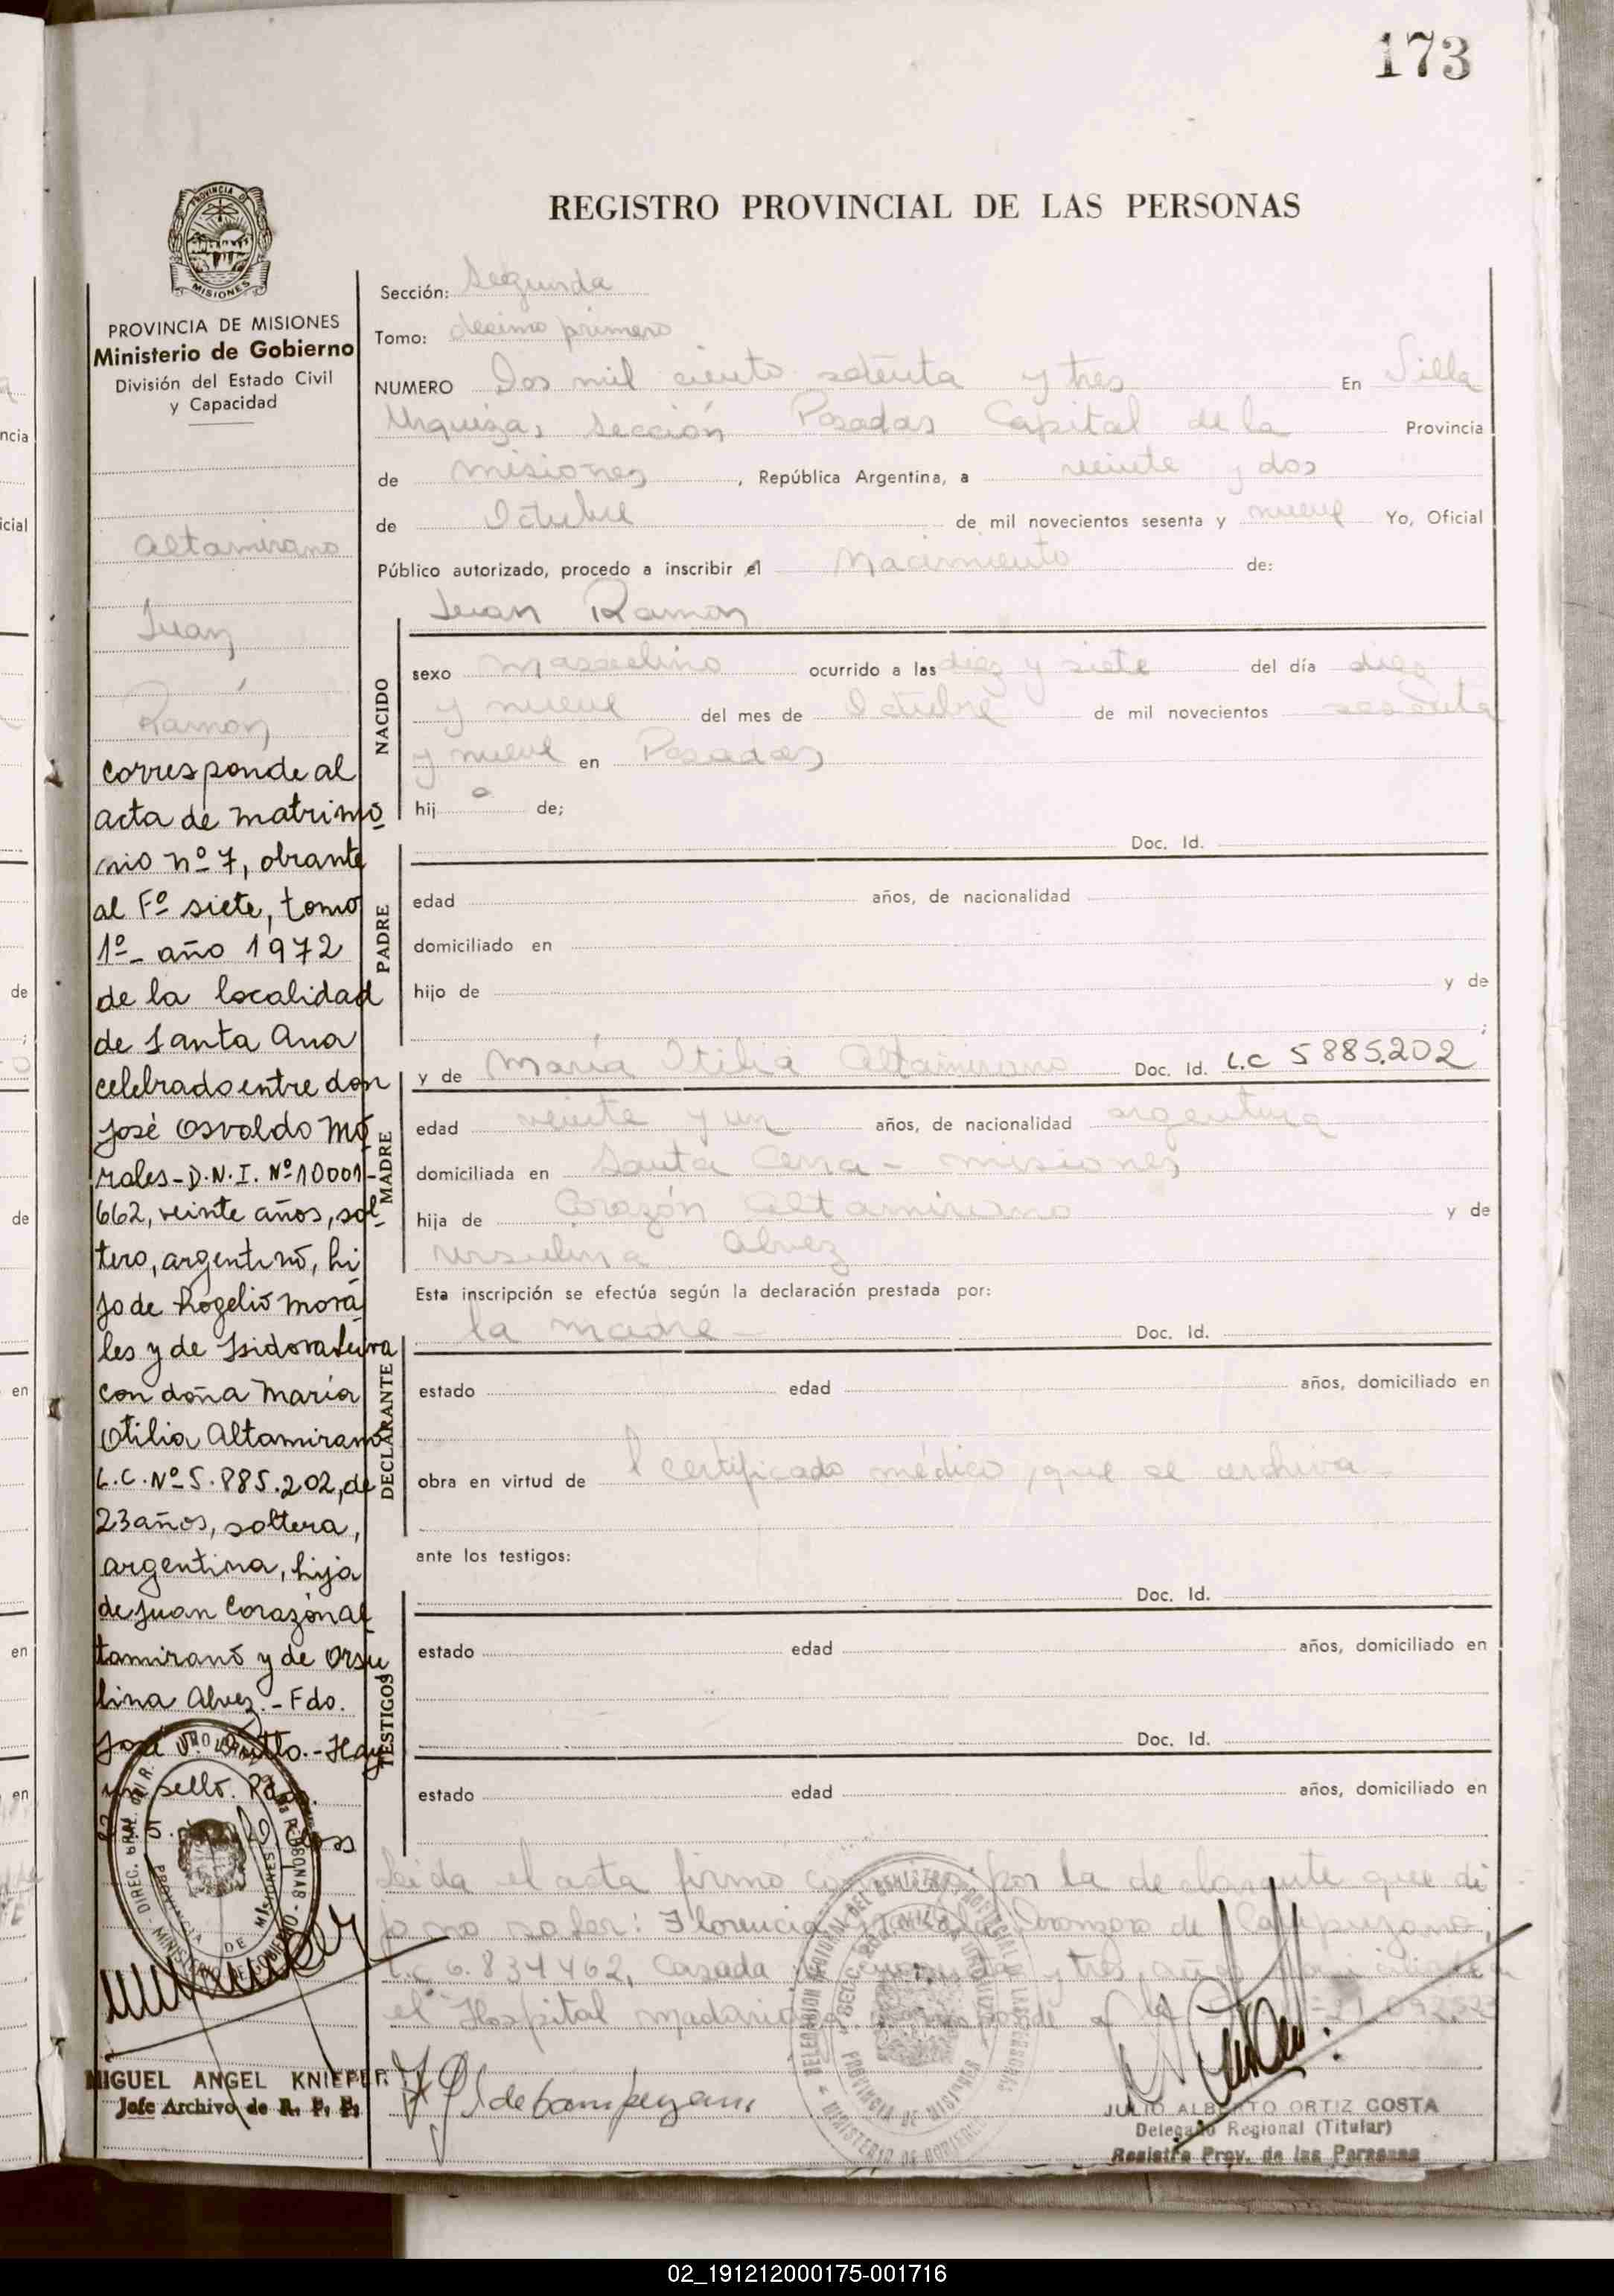 173
REGISTRO PROVINCIAL DE LAS PERSONAS
PROVINCIA DE MISIONES
Ministerio de Gobierno
División del Estado Civil
y Capacidad
Altamirano
Juan
Ramón
corresponde al
acta de matrimo
nio nº 7, obrante
al Fº siete, tomo
1º- año 1972
de la localidad
de Santa Ana
celebrado entre don
José Osvaldo Mo
rales-D.N.I. Nº 10001-
662, veinte años, sol
tero, argentino, hi
jo de Rogelio Mora
les y de Isidora
con doña María
Otilia Altamirano
L.C. Nº 5.885.202, de
23 años, soltera,
argentina, hija
de Juan Corazón Al
tamirano y de Orsu
lina Alvez.-Fdo.
José -Hay
un sello.
MIGUEL ANGEL KNIEPER
Jefe Archivo de R. P. P.
Sección: Segunda
Tomo: decimo primero
NUMERO Dos mil ciento setenta y tres En Villa
Urquiza, Sección Posadas Capital de la Provincia
de Misiones, República Argentina, a veinte y dos
de Octubre de mil novecientos sesenta y nueve Yo, Oficial
Público autorizado, procedo a inscribir el Nacimiento de:
Juan Ramon
NACIDO
sexo Masculino ocurrido a las diez y siete del día diez
y nueve del mes de Octubre de mil novecientos sesenta
y nueve en Posadas
hijo de;
Doc. Id.
PADRE
edad años, de nacionalidad
domiciliado en
hijo de y de
;
y de María Otilia Altamirano Doc. Id. L.C 5885.202
MADRE
edad veinte y un años, de nacionalidad argentina
domiciliada en Santa Ana - Misiones
hija de Corazón Altamirano y de
Ursulina Alvez
Esta inscripción se efectúa según la declaración prestada por:
la madre- Doc. Id.
DECLARANTE
estado edad años, domiciliado en
obra en virtud de l certificado médico, que se archiva-
ante los testigos:
Doc. Id.
TESTIGOS
estado edad años, domiciliado en
Doc. Id.
estado edad años, domiciliado en
Leida el acta firmo por la declarante que di
jo no saber: Florencia de Campuzano,
L.C 6.834462, Casada y tres años domiciliada en
el Hospital
JULIO ALBERTO ORTIZ COSTA
Delegado Regional (Titular)
Registro Prov. de las Personas
02_191212000175-001716